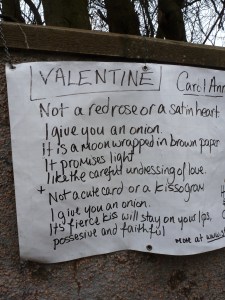 VALENTINE Carol Ann
Not a red rose or a satin heart
I give you an onion.
It is a moon wrapped in brown paper
It promises light
like the careful undressing of love.
+ Not a cute card or a kissogram
I give you an onion.
Its fierce kis will stay on your lips,
possesive and faithful
More at